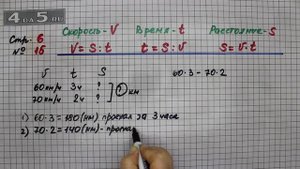 4 ДА 5 .ru
Стр. 6 Скорость - V Время - t Расстояние - S
№ 15 V = S : t t = S : V S = V · t
V t S 60 · 3 - 70 · 2
60 км/ч 3ч ? ? км
70 км/ч 2ч ?
1) 60 · 3 = 180 (км) проехал за 3 часа
2) 70 · 2 = 140 (км) - проеха